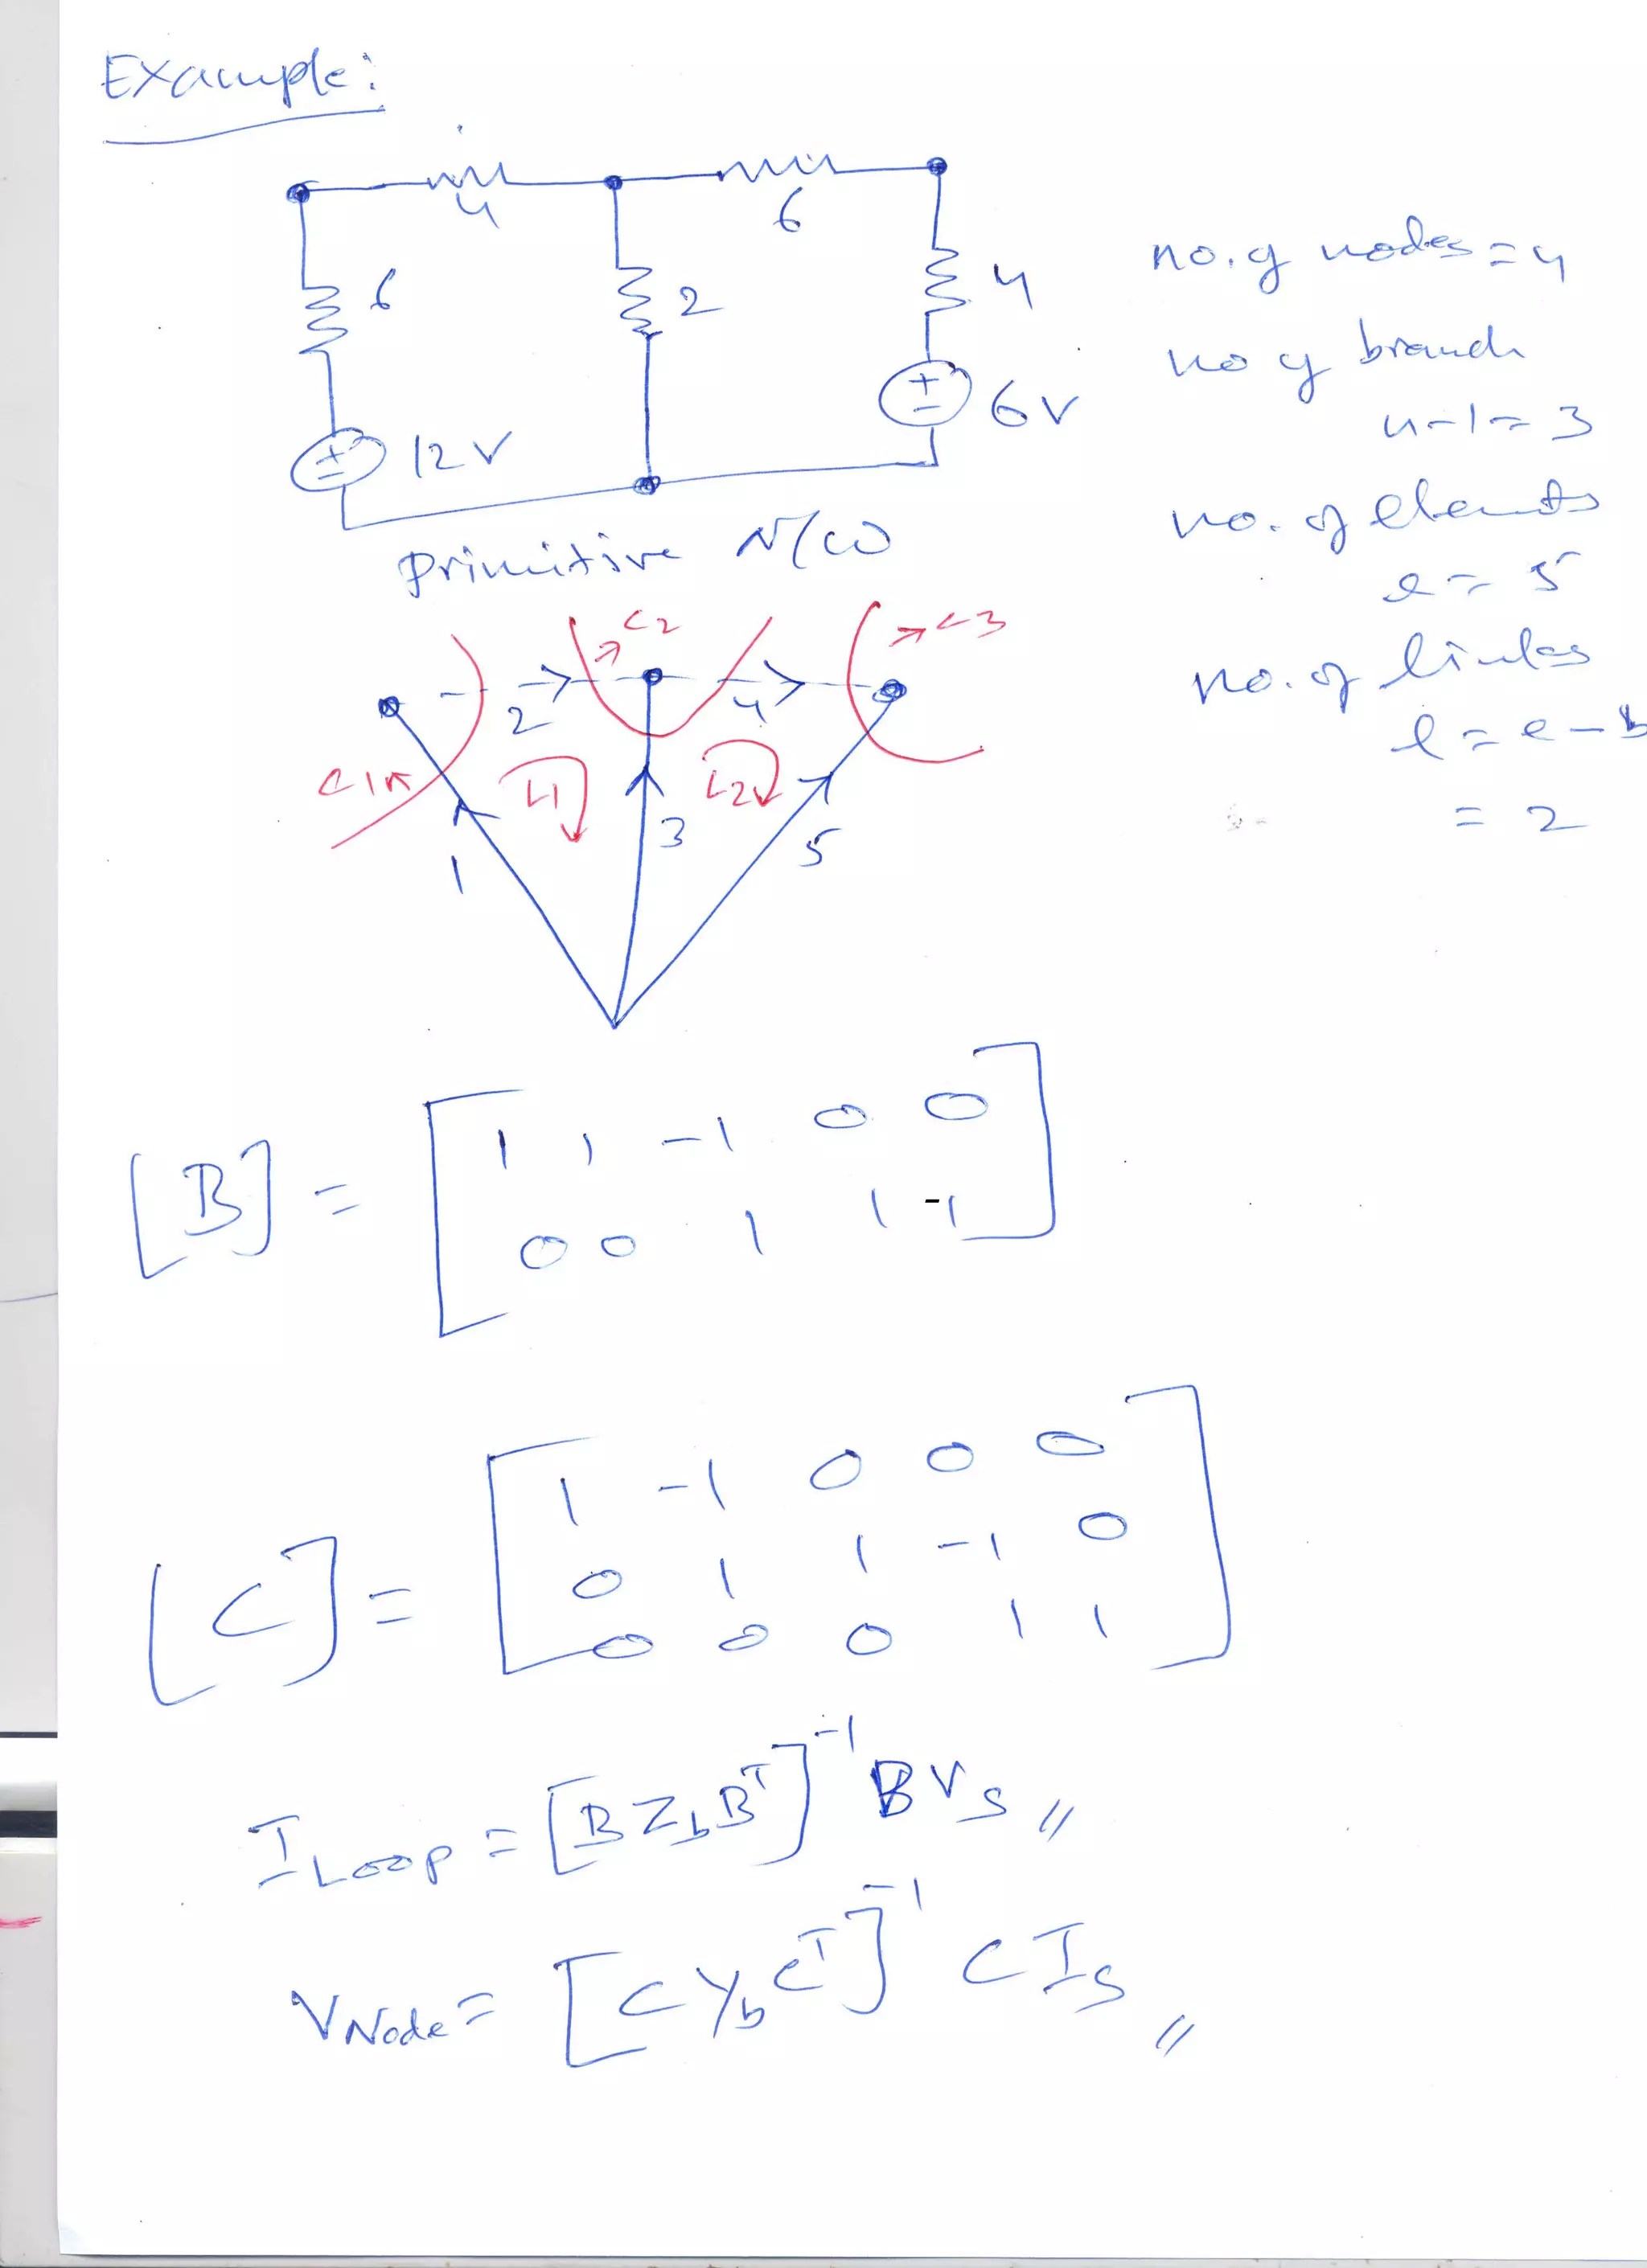 Example:
4
6
6
2
4
12V
6V
no. of nodes = 4
no of branch
n-1 = 3
no. of elements
e = 5
no. of links
l = e - b
= 2
Primitive N/w
C1
C2
C3
2
4
L1
L2
1
3
5
[B] = [ 1 1 -1 0 0
0 0 1 1 -1 ]
[C] = [ 1 -1 0 0 0
0 1 1 -1 0
0 0 0 1 1 ]
I Loop = [B Z_b B^T]^-1 B V_S //
V Node = [C Y_b C^T]^-1 C I_S //